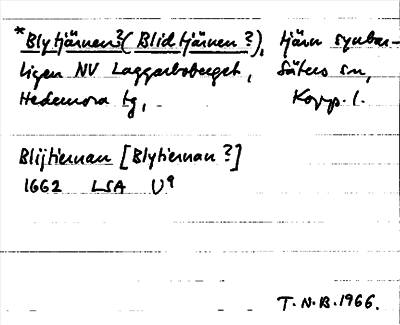 *Blytjärnen? (Blidtjärnen?), tjärn synbar-
ligen NV Laggarboberget, Säters sn,
Hedemora tg, Kopp. l.
Blijtiernan [Blytiernan?]
1662 LSA U9
T.N.B. 1966.